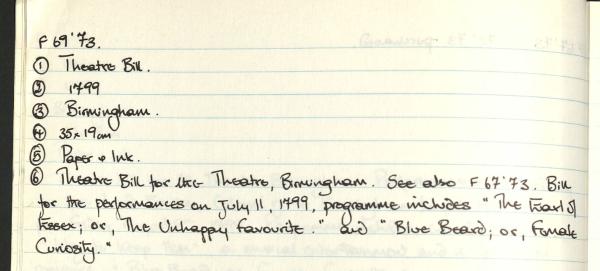 F 69'73.
① Theatre Bill.
② 1799
③ Birmingham.
④ 35x19cm
⑤ Paper & Ink.
⑥ Theatre Bill for the Theatre, Birmingham. See also F 67'73. Bill
for the performances on July 11, 1799, programme includes "The Earl of
Essex; or, The Unhappy Favourite." and "Blue Beard; or, Female
Curiosity."